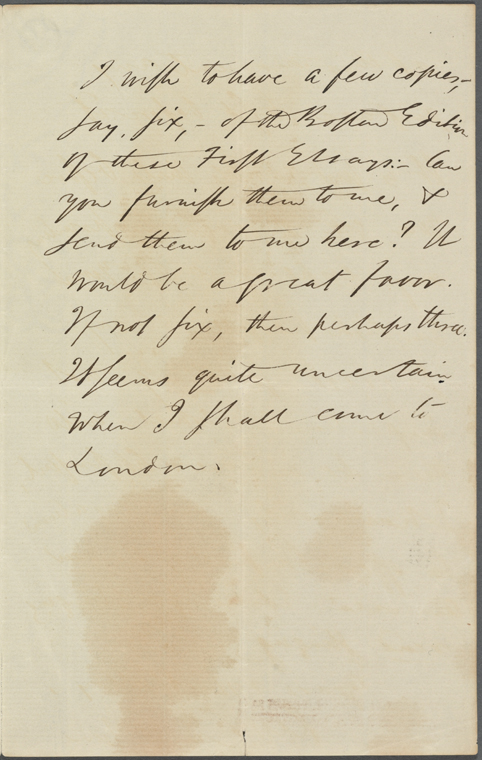 I wish to have a few copies,-
say, six,- of the Boston Edition
of these First Essays:- Can
you furnish them to me, &
send them to me here? It
would be a great favor.
If not six, then perhaps three.
It seems quite uncertain
when I shall come to
London.